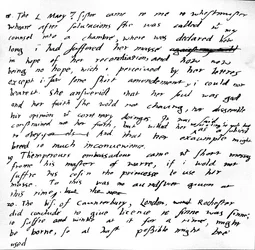 18. The L. Mary my sister came to me to Whestmuster
wheare after salutacions she was called with my
counsel into a chambre, where was declared how
long I had suffered her masse
in hope of her reconciliation and how now
being no hope, wich I perceived by her letters
except I saw some short amendement, I could not
beare it. She answerid that her soul was god
and her faith she wold not chaung, nor dissemble
her opinion with contrary doinges. It was said
constrained not her faith, but willed her
to obey And that her exaumple might
breed to much inconvenience.
19. Themperours embassadour came with short message
frome his master of warre, if I would not
suffre his cosin the princesse to use her
masse. To this was no aunswer given at
this time
20. The Bs. of Caunterbury, London, and Rochester
did conclude to give licence to sinne was sinne,
to suffre and winke at it for a time might
be borne, so al hast possible might bee
used